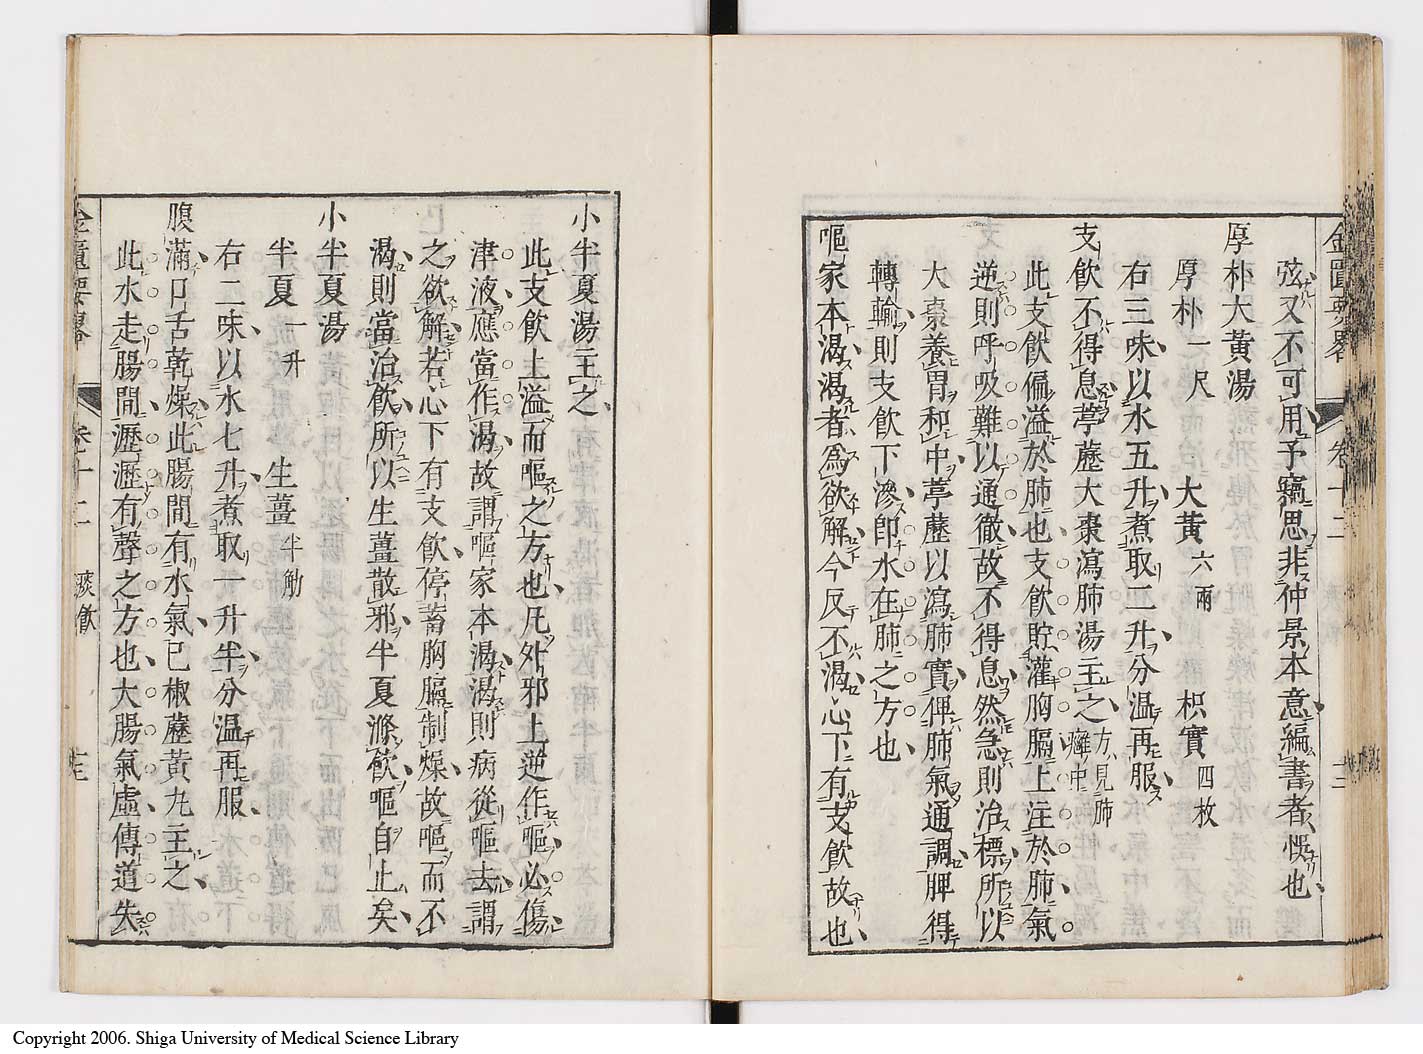 金匱要畧 卷十二
弦又不可用予竊思非仲景本意編書者悞也
厚朴大黄湯
厚朴一尺 大黄六兩 枳實四枚
右三味以水五升煮取二升分温再服
支飲不得息葶藶大棗瀉肺湯主之方見肺癰中
此支飲偏溢於肺也支飲貯灌胸膈上注於肺氣
逆則呼吸難以通徹故不得息然急則治標所以
大棗養胃和中葶藶以瀉肺實俾肺氣通調脾得
轉輸則支飲下滲卽水在肺之方也
嘔家本渴渴者爲欲解今反不渴心下有支飲故也
小半夏湯主之
此支飲上溢而嘔之方也凡外邪上逆作嘔必傷
津液應當作渴故謂嘔家本渴渴則病從嘔去謂
之欲解若心下有支飲停蓄胸膈制燥故嘔而不
渴則當治飲所以生薑散邪半夏滌飲嘔自止矣
小半夏湯
半夏一升 生薑半觔
右二味以水七升煮取一升半分温再服
腹滿口舌乾燥此腸間有水氣已椒藶黄丸主之
此水走腸間瀝瀝有聲之方也大腸氣虛傳道失
金匱要畧 卷十二 痰飲
Copyright 2006. Shiga University of Medical Science Library